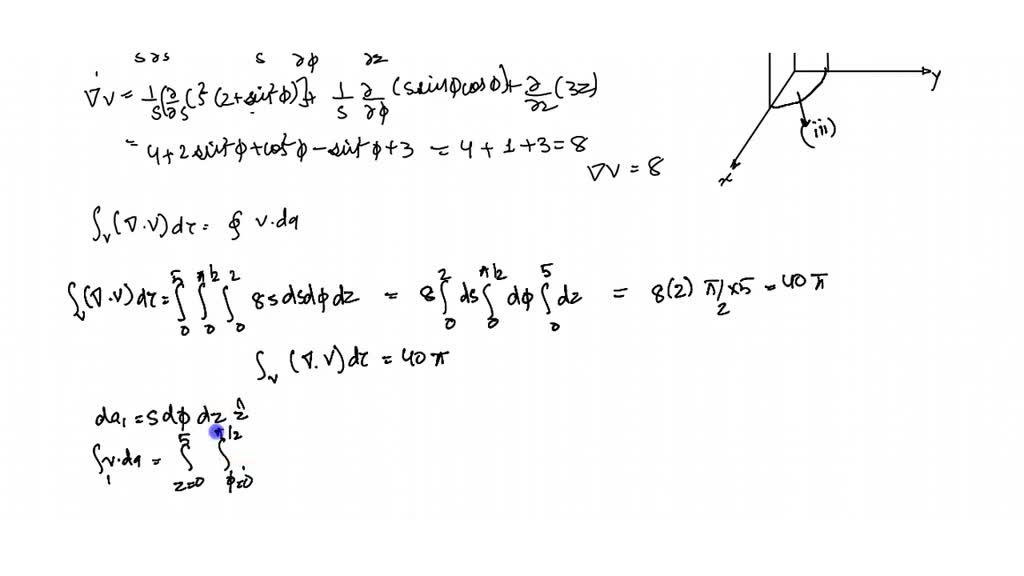 s ∂s s ∂φ ∂z
∇v = 1/s [∂/∂s (s² (2+sin²φ)] + 1/s ∂/∂φ (s sinφ cosφ) + ∂/∂z (3z)
= 4+2 sin²φ + cos²φ − sin²φ + 3 = 4+1+3 = 8
∇v = 8
y
(iii)
x
∫v (∇.v) dτ = ∮ v.da
∫v (∇.v) dτ = ∫₀⁵ ∫₀^π/2 ∫₀² 8 s ds dφ dz = 8 ∫₀² ds ∫₀^π/2 dφ ∫₀⁵ dz = 8(2) π/2 x5 = 40 π
∫v (∇.v) dτ = 40 π
da₁ = s dφ dz ẑ
∫₁ v.da = ∫_z=0^5 ∫_φ=0^π/2